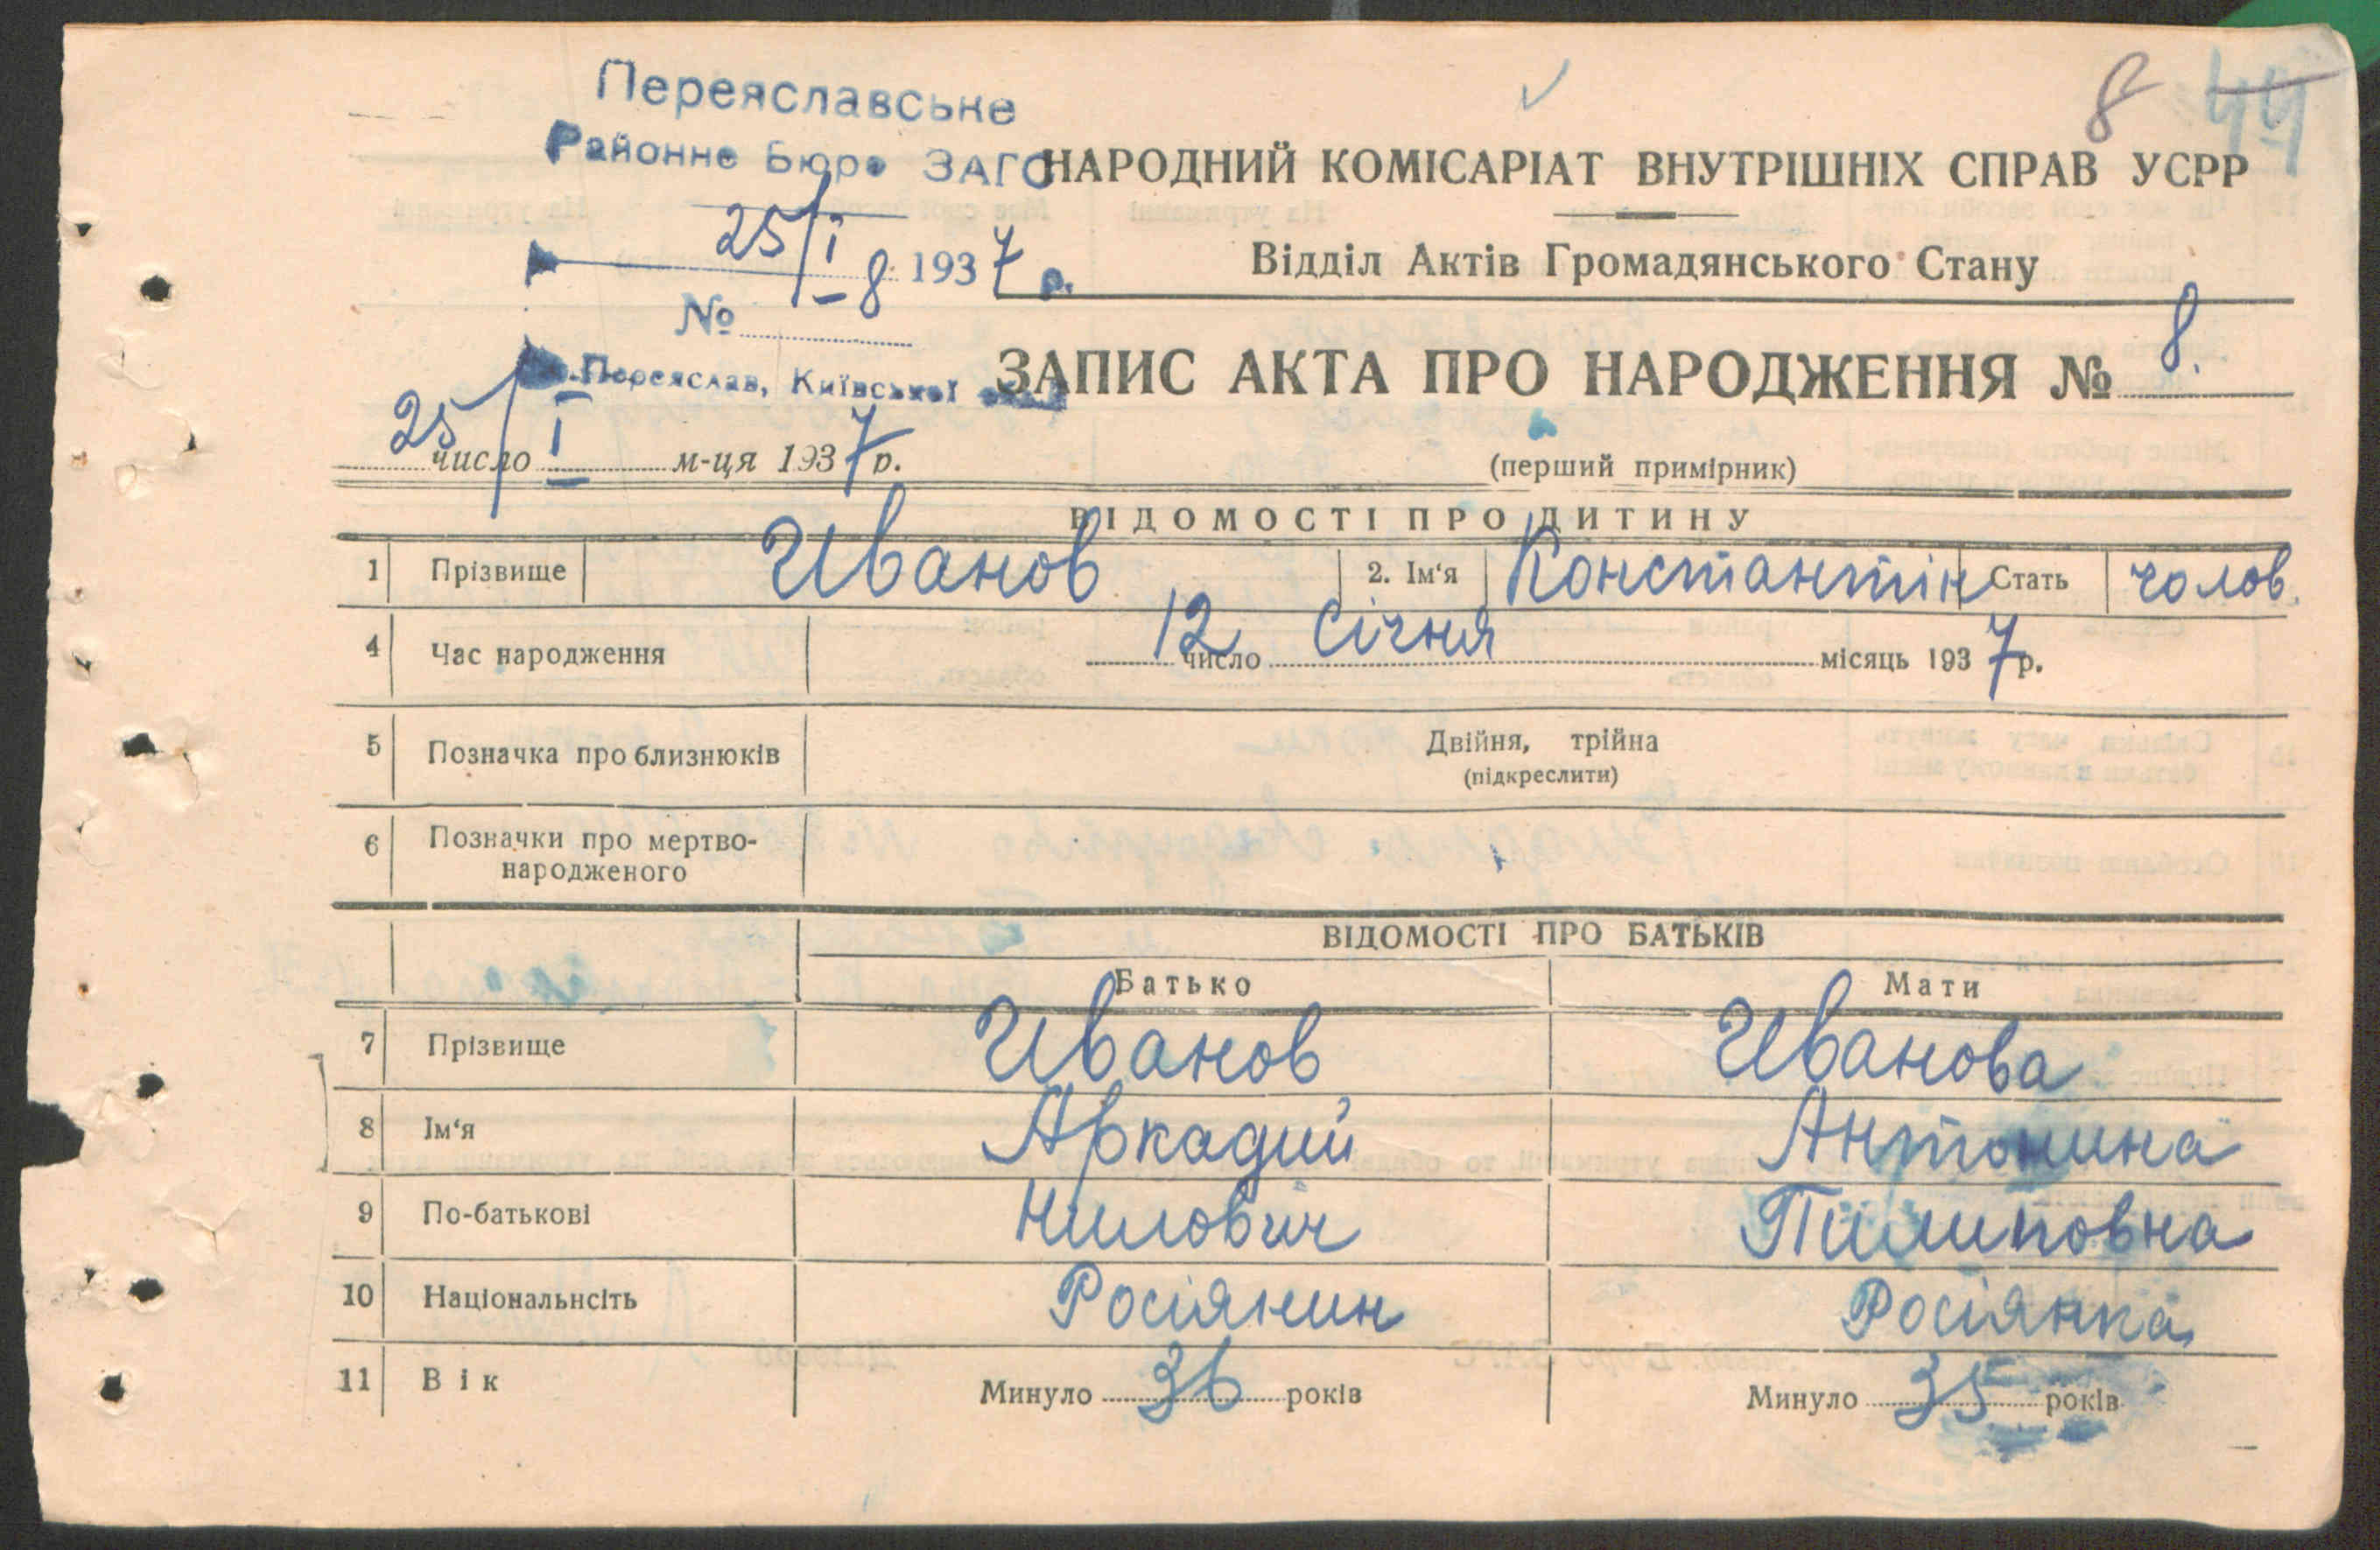 8 44
Переяславське
Районне Бюро ЗАГС
25/I 8 1937 р.
№
Переяслав, Київської
НАРОДНИЙ КОМІСАРІАТ ВНУТРІШНІХ СПРАВ УСРР
Відділ Актів Громадянського Стану
ЗАПИС АКТА ПРО НАРОДЖЕННЯ № 8.
25/ число I м-ця 1937 р.
(перший примірник)
ВІДОМОСТІ ПРО ДИТИНУ
1 Прізвище Иванов 2. Ім'я Константін Стать чолов.
4 Час народження 12 число Січня місяць 1937 р.
5 Позначка про близнюків Двійня, трійна
(підкреслити)
6 Позначки про мертво-
народженого
ВІДОМОСТІ ПРО БАТЬКІВ
Батько Мати
7 Прізвище Иванов Иванова
8 Ім'я Аркадий Антонина
9 По-батькові Нилович Пилиповна
10 Національнсіть Росіянин Росіянка
11 Вік Минуло 36 років Минуло 35 років